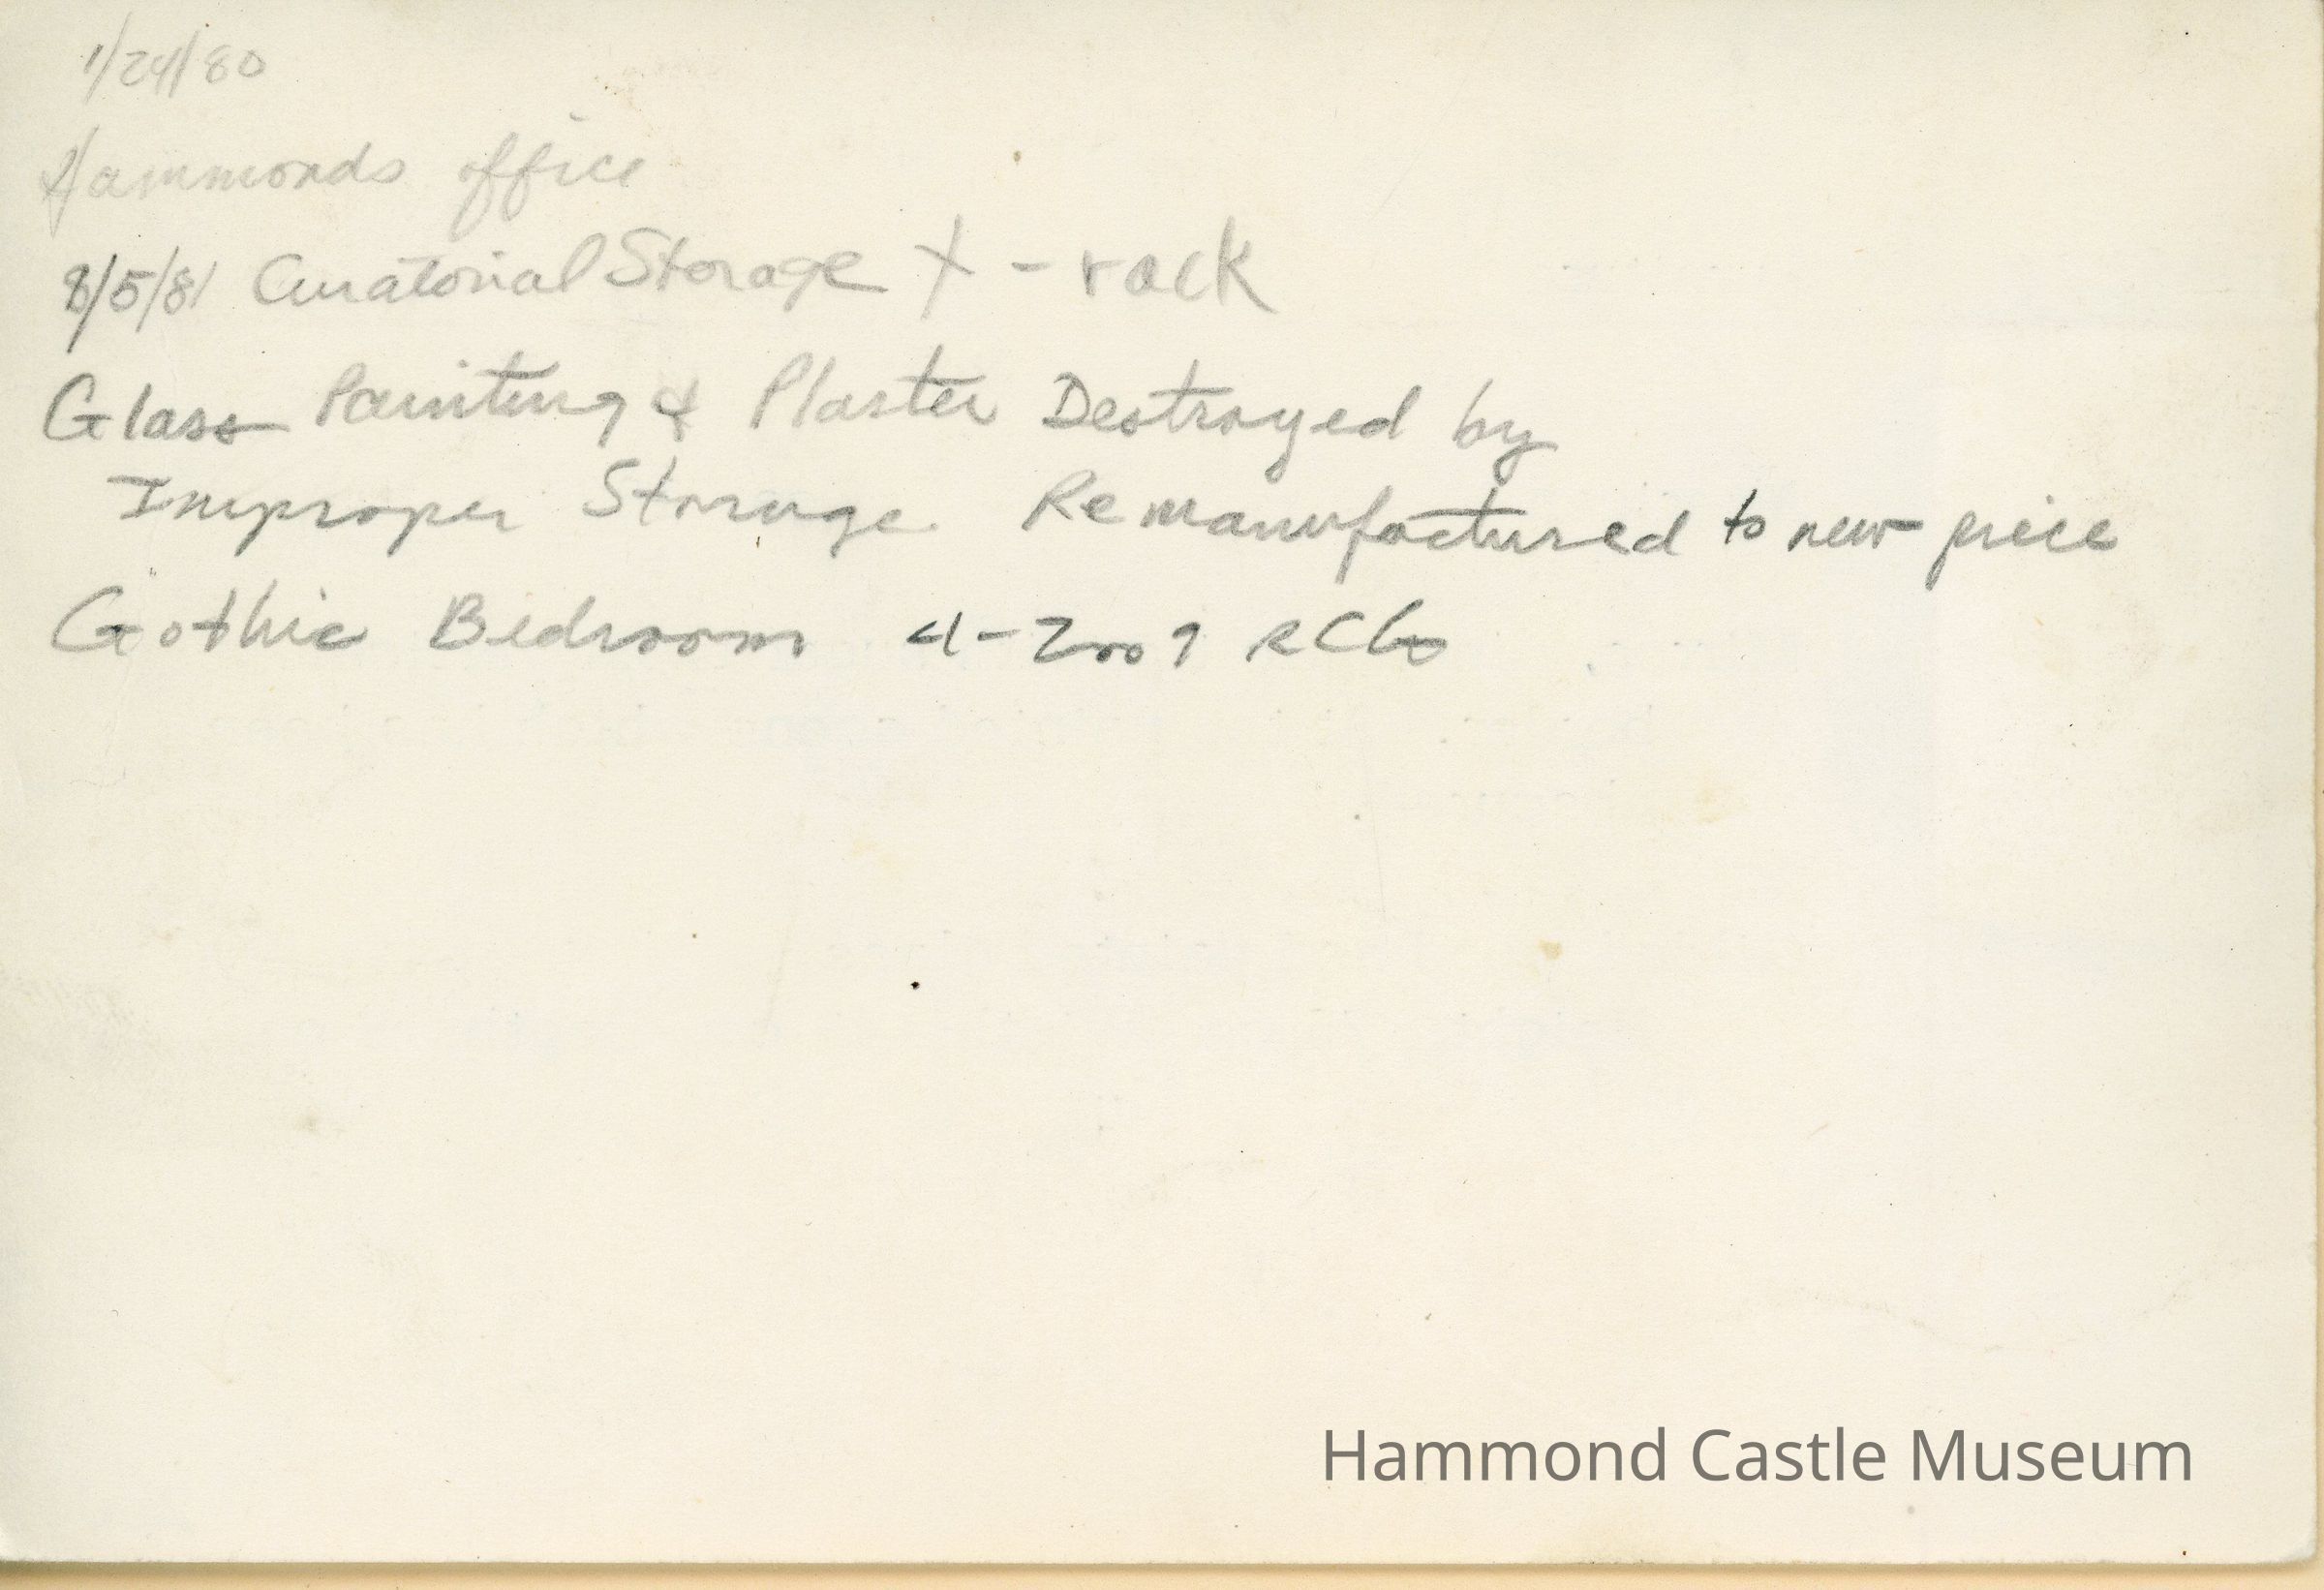 1/24/80
Hammonds office
8/5/81 Curatorial Storage X - rack
Glass Painting & Plaster Destroyed by
Improper Storage. Remanufactured to new piece
Gothic Bedroom 4-2009
Hammond Castle Museum